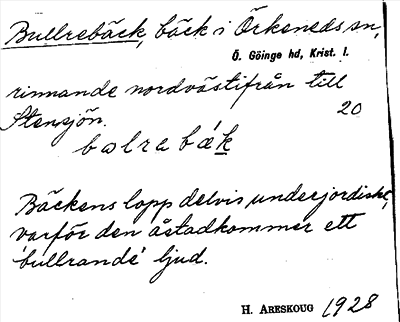 Bullrebäck, bäck i Örkeneds sn,
Ö. Göinge hd, Krist. l.
rinnande nordvästifrån till
Stensjön. 20
Bäckens lopp delvis underjordiskt,
varför den åstadkommer ett
'bullrande' ljud.
H. ARESKOUG 1928